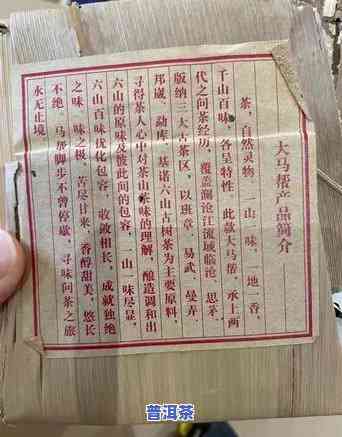 大马帮产品简介
茶，自然灵物，一山一味，地一香，
千山百味，各呈特性 此款大马帮 承上两
代之问茶经历，覆盖澜沧江流域临沧、思茅、
版纳三大古茶区，以班章、易武、曼弄
邦崴、勐库、基诺六山古树茶为主要原料，
寻得茶人心中对茶山茶味的理解，酿造调和出
六山的原味及彼此间的包容，一山一味尽显，
六山百味优化包容，收敛相长，成就独绝
之味，味之极，苦尽甘来，香醇甜美，悠长
不绝。马帮脚步不曾停歇，寻味问茶之旅
永无止境
普洱茶